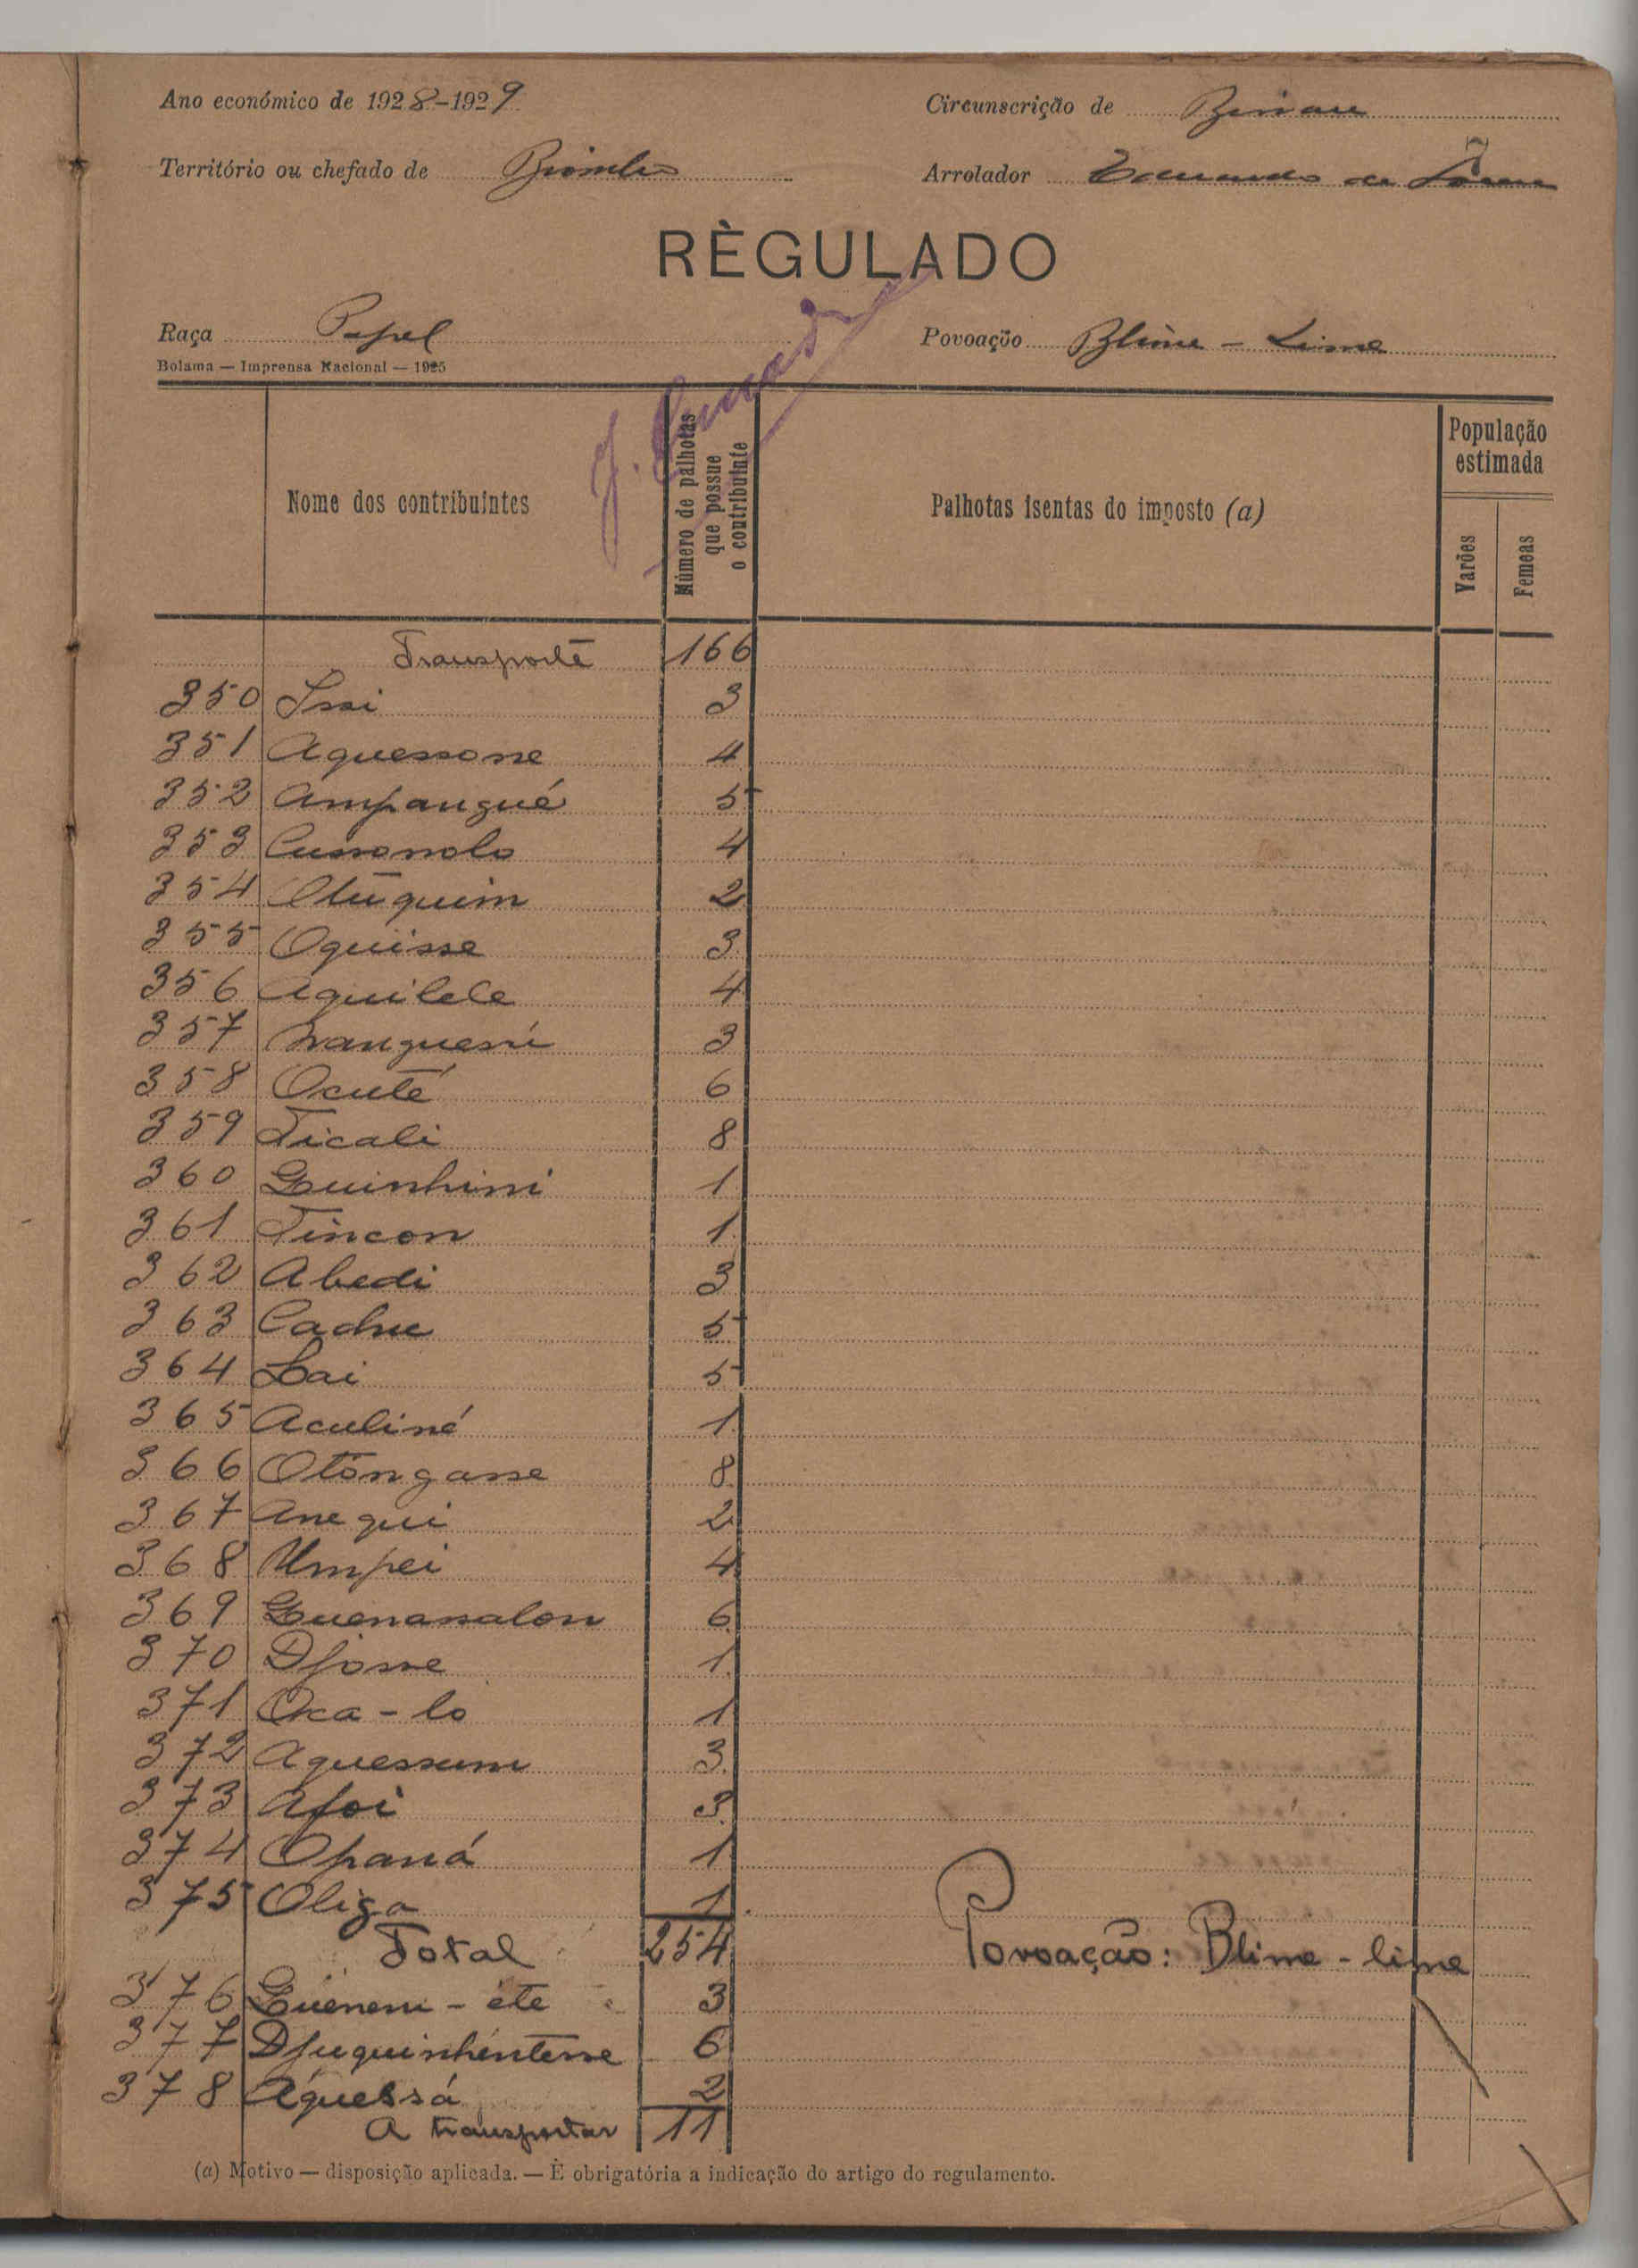 Ano económico de 1928-1929
Circunscrição de Bissau
Território ou chefado de Biombo
Arrolador
RÈGULADO
Raça Papel
Povoação Blime - Lime
Bolama — Imprensa Nacional — 1925
Nome dos contribuintes
Número de palhotas que possue o contribuinte
Palhotas isentas do imposto (a)
População estimada
Varões
Femeas
Transporte 166
350 Issi 3
351 Aquessone 4
352 Ampangué 5
353 Cussonolo 4
354 Otuquim 2
355 Oquisse 3
356 Aquilele 4
357 3
358 Ocuté 6
359 Ticali 8
360 Guinhini 1
361 Tincon 1
362 Abedi 3
363 Cadue 5
364 Lai 5
365 Aculiné 1
366 Otongasse 8
367 Anequi 2
368 Umpei 4
369 Guenansalon 6
370 Djosse 1
371 Oca - ló 1
372 Aquessum 3
373 Afoi 3
374 Opaná 1
375 Oliga 1
Total 254 Povoação: Blime - lime
376 Guenem - éte 3
377 Djuquinhéntesse 6
378 Aquessá 2
A transportar 11
(a) Motivo — disposição aplicada. — É obrigatória a indicação do artigo do regulamento.